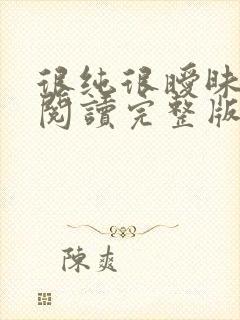 很純很曖昧
閱讀完整版
陳爽